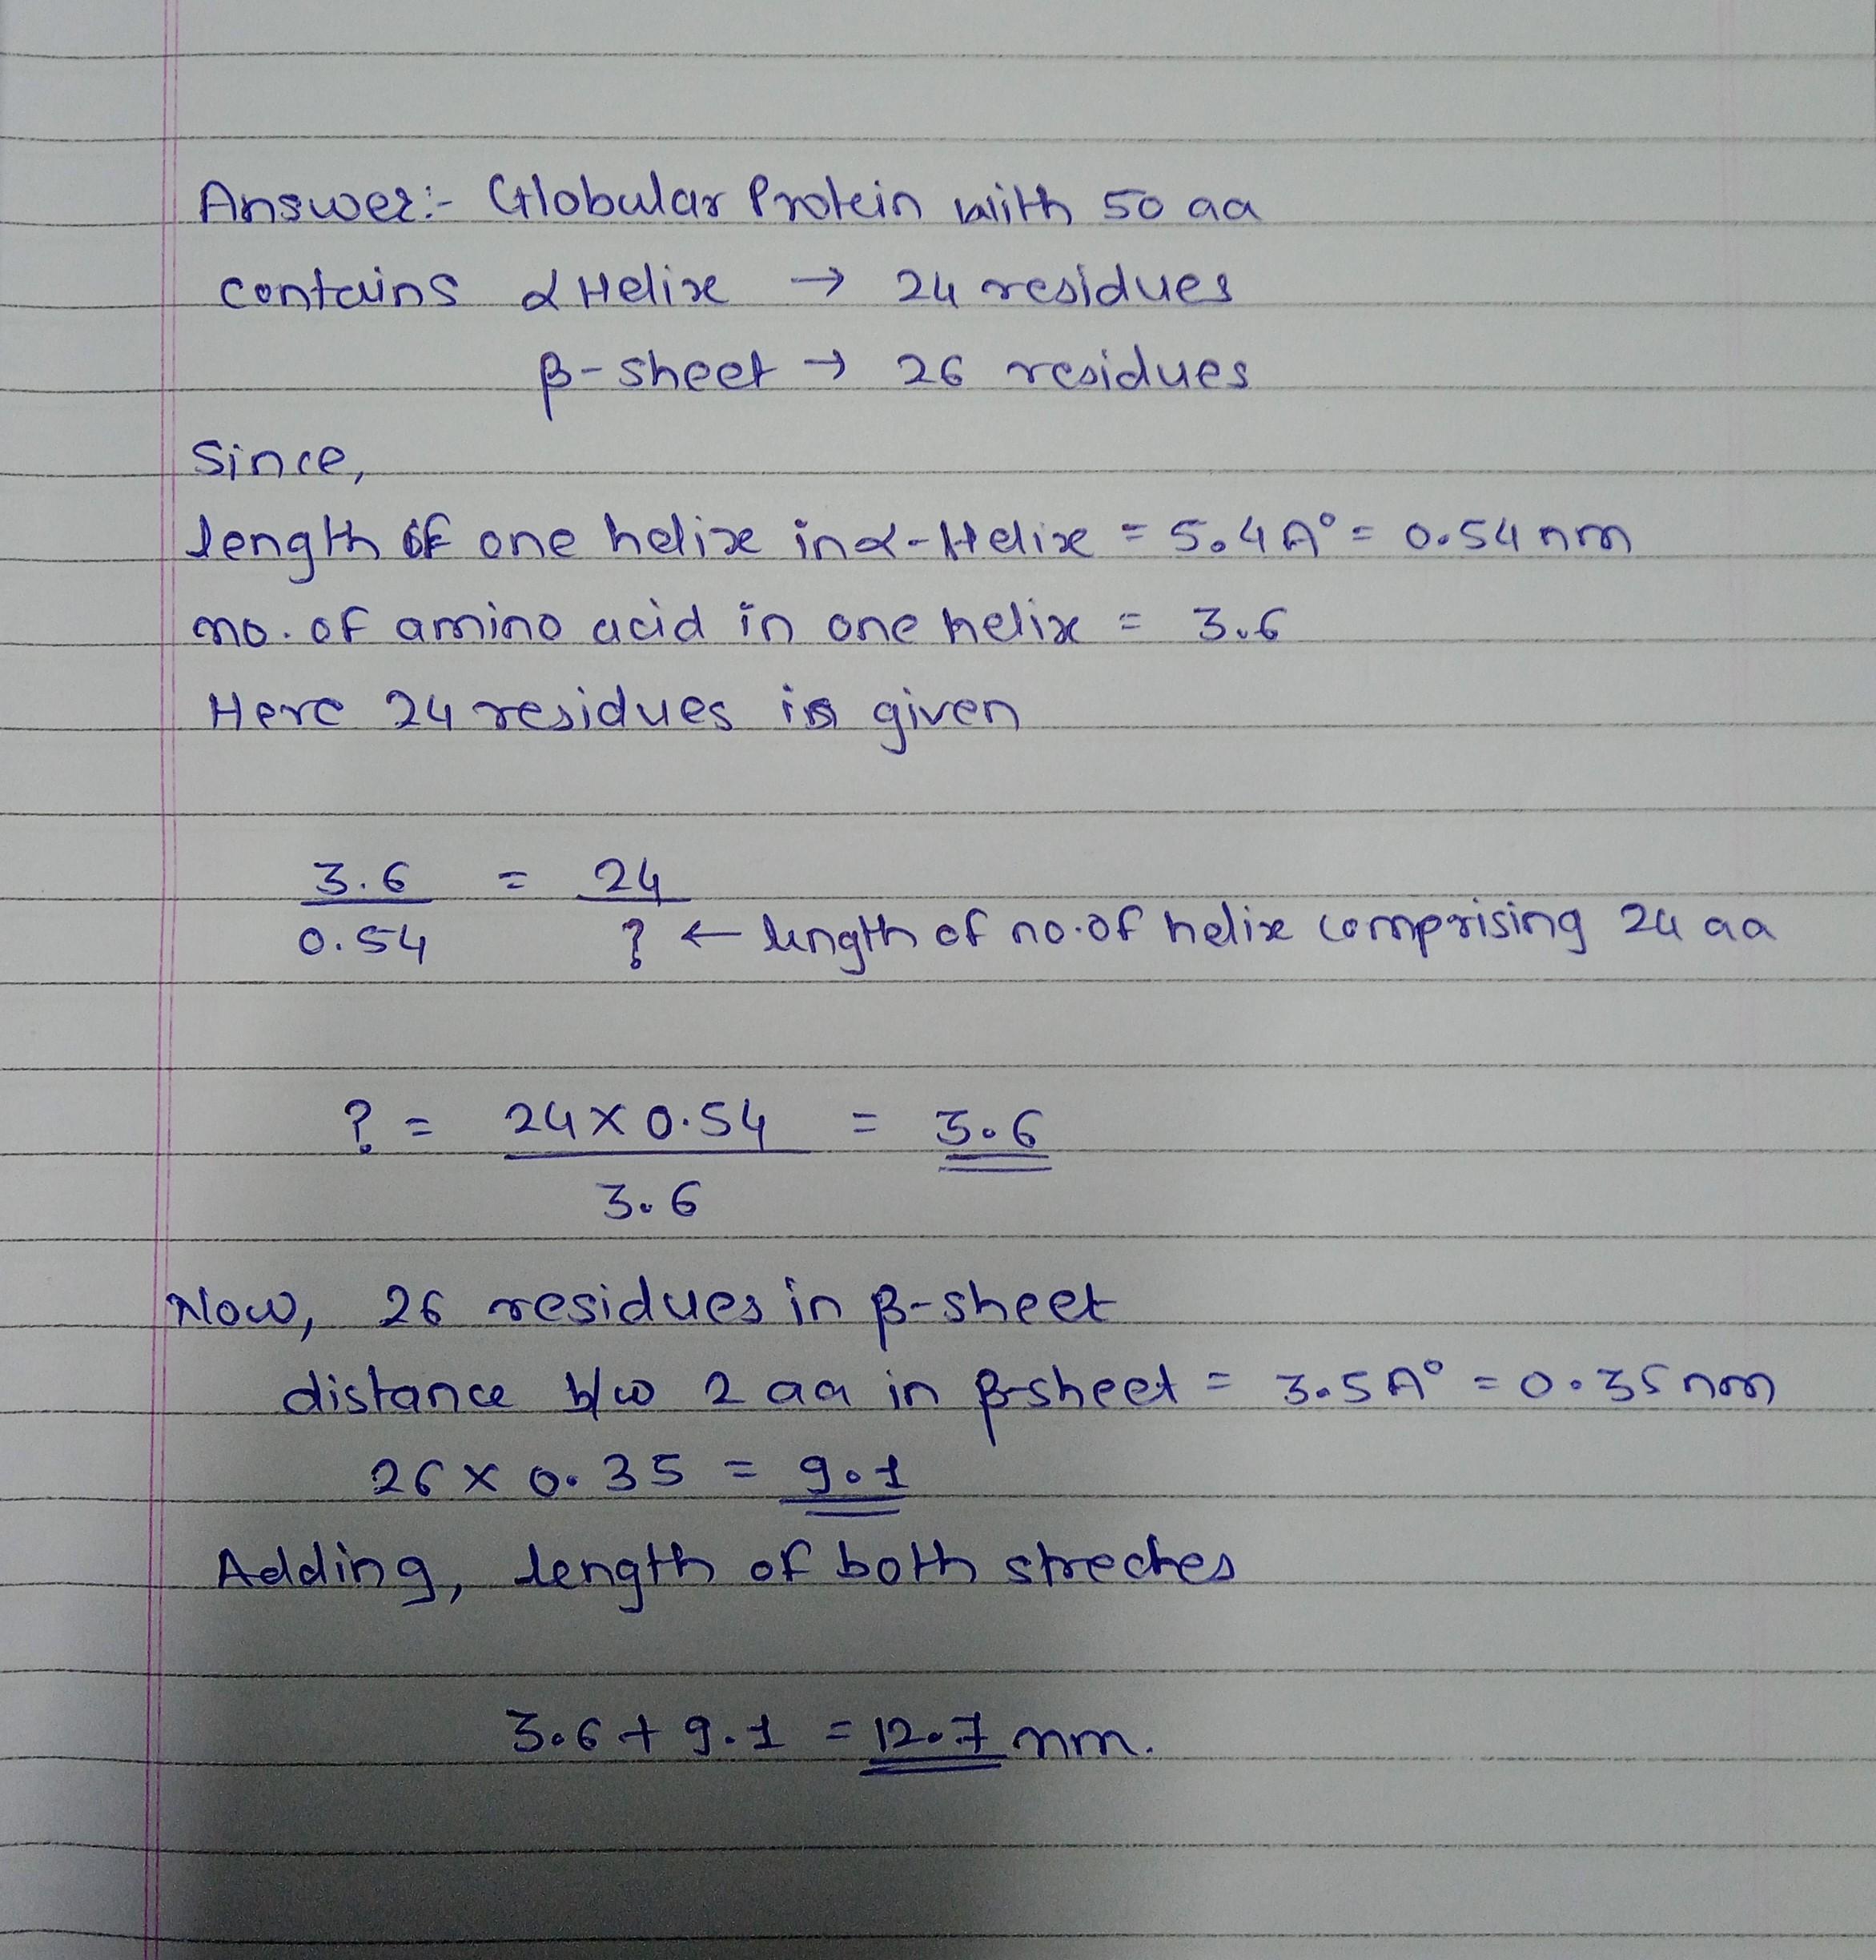 Answer:- Globular Protein with 50 aa
contains α Helix → 24 residues
β-sheet → 26 residues
Since,
length of one helix in α-Helix = 5.4 A° = 0.54 nm
no. of amino acid in one helix = 3.6
Here 24 residues is given
3.6 = 24
0.54 ? ← length of no. of helix comprising 24 aa
? = 24 × 0.54 = 3.6
3.6
Now, 26 residues in β-sheet
distance b/w 2 aa in β-sheet = 3.5 A° = 0.35 nm
26 × 0.35 = 9.1
Adding, length of both streches
3.6 + 9.1 = 12.7 nm.